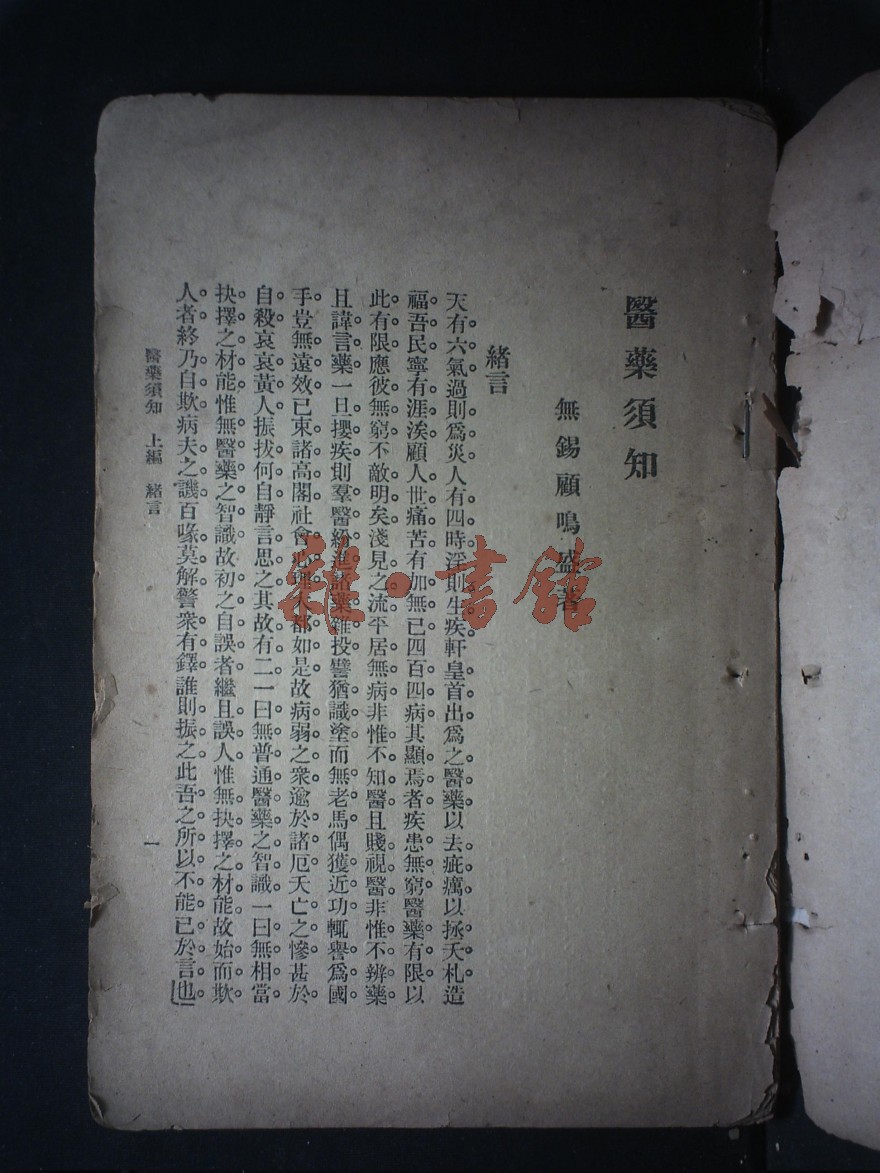 醫藥須知
無錫顧鳴盛著
緒言
天有六氣過則爲災人有四時淫則生疾軒皇首出爲之醫藥以去疵癘以拯夭札造
福吾民寧有涯涘顧人世痛苦有加無已四百四病其顯焉者疾患無窮醫藥有限以
此有限應彼無窮不敵明矣淺見之流平居無病非惟不知醫且賤視醫非惟不辨藥
且諱言藥一旦攖疾則羣醫紛進諸藥雜投譬猶識塗而無老馬偶獲近功輒譽爲國
手豈無遠效已束諸高閣社會心理大都如是故病弱之衆逾於諸厄夭亡之慘甚於
自殺哀哀黃人振拔何自靜言思之其故有二一曰無普通醫藥之智識一曰無相當
抉擇之材能惟無醫藥之智識故初之自誤者繼且誤人惟無抉擇之材能故始而欺
人者終乃自欺病夫之譏百喙莫解警衆有鐸誰則振之此吾之所以不能已於言也
醫藥須知 上編 緒言 一
雜·書館